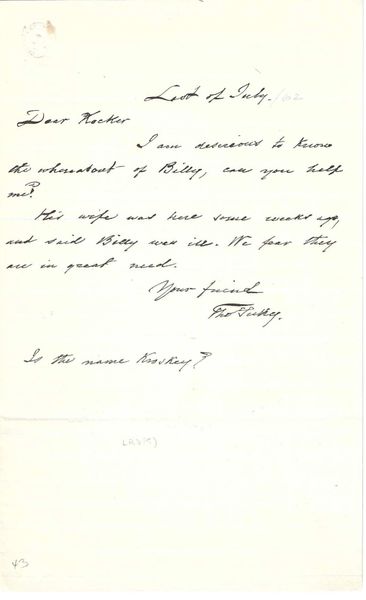 Last of July.
Dear Kocker
I am desirious to know
the whereabout of Billy, can you help
me?
His wife was here some weeks ago,
and said Billy was ill. We fear they
are in great need.
Your friend
Tho
Is the name Kroskey?
43